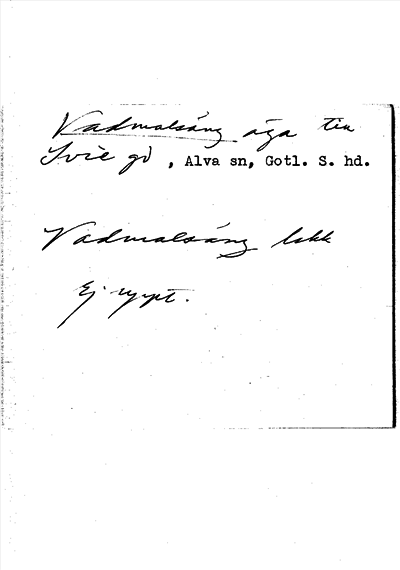 Vadmalsäng äga till
Svie gd, Alva sn, Gotl. S. hd.
Vadmalsäng
Ej uppt.